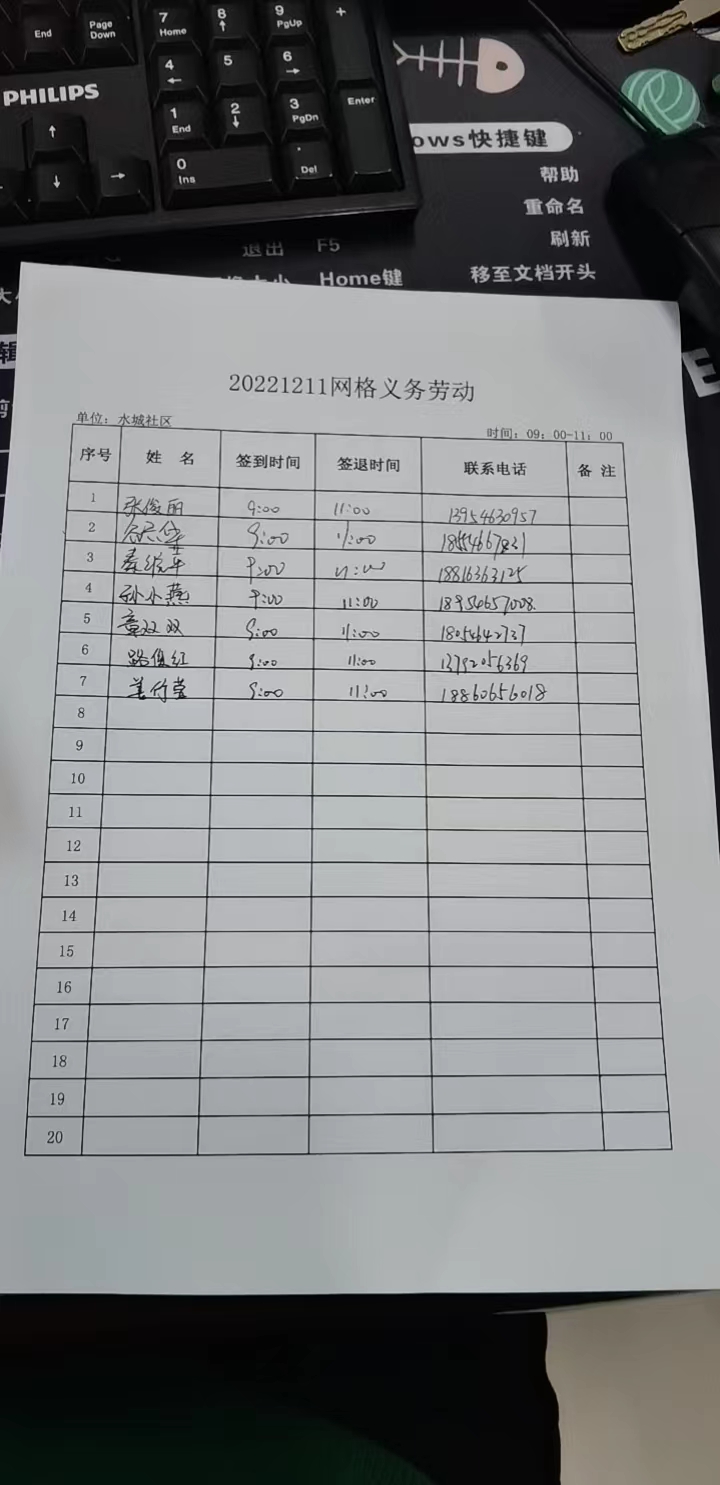 End
Page Down
7 Home
8
9 PgUp
+
4
5
6
PHILIPS
1 End
2
3 PgDn
Enter
0 Ins
. Del
ows快捷键
帮助
重命名
刷新
退出 F5
Home键 移至文档开头
20221211网格义务劳动
单位：水城社区
时间：09：00-11：00
序号 姓 名 签到时间 签退时间 联系电话 备 注
1 张俊丽 9:00 11:00 13954630957
2 9:00 11:00
3 9:00 11:00 18816363125
4 孙小燕 9:00 11:00 18954657008
5 章双双 9:00 11:00 18054642737
6 路俊红 9:00 11:00 13792056369
7 姜竹莹 9:00 11:00 18860656018
8
9
10
11
12
13
14
15
16
17
18
19
20